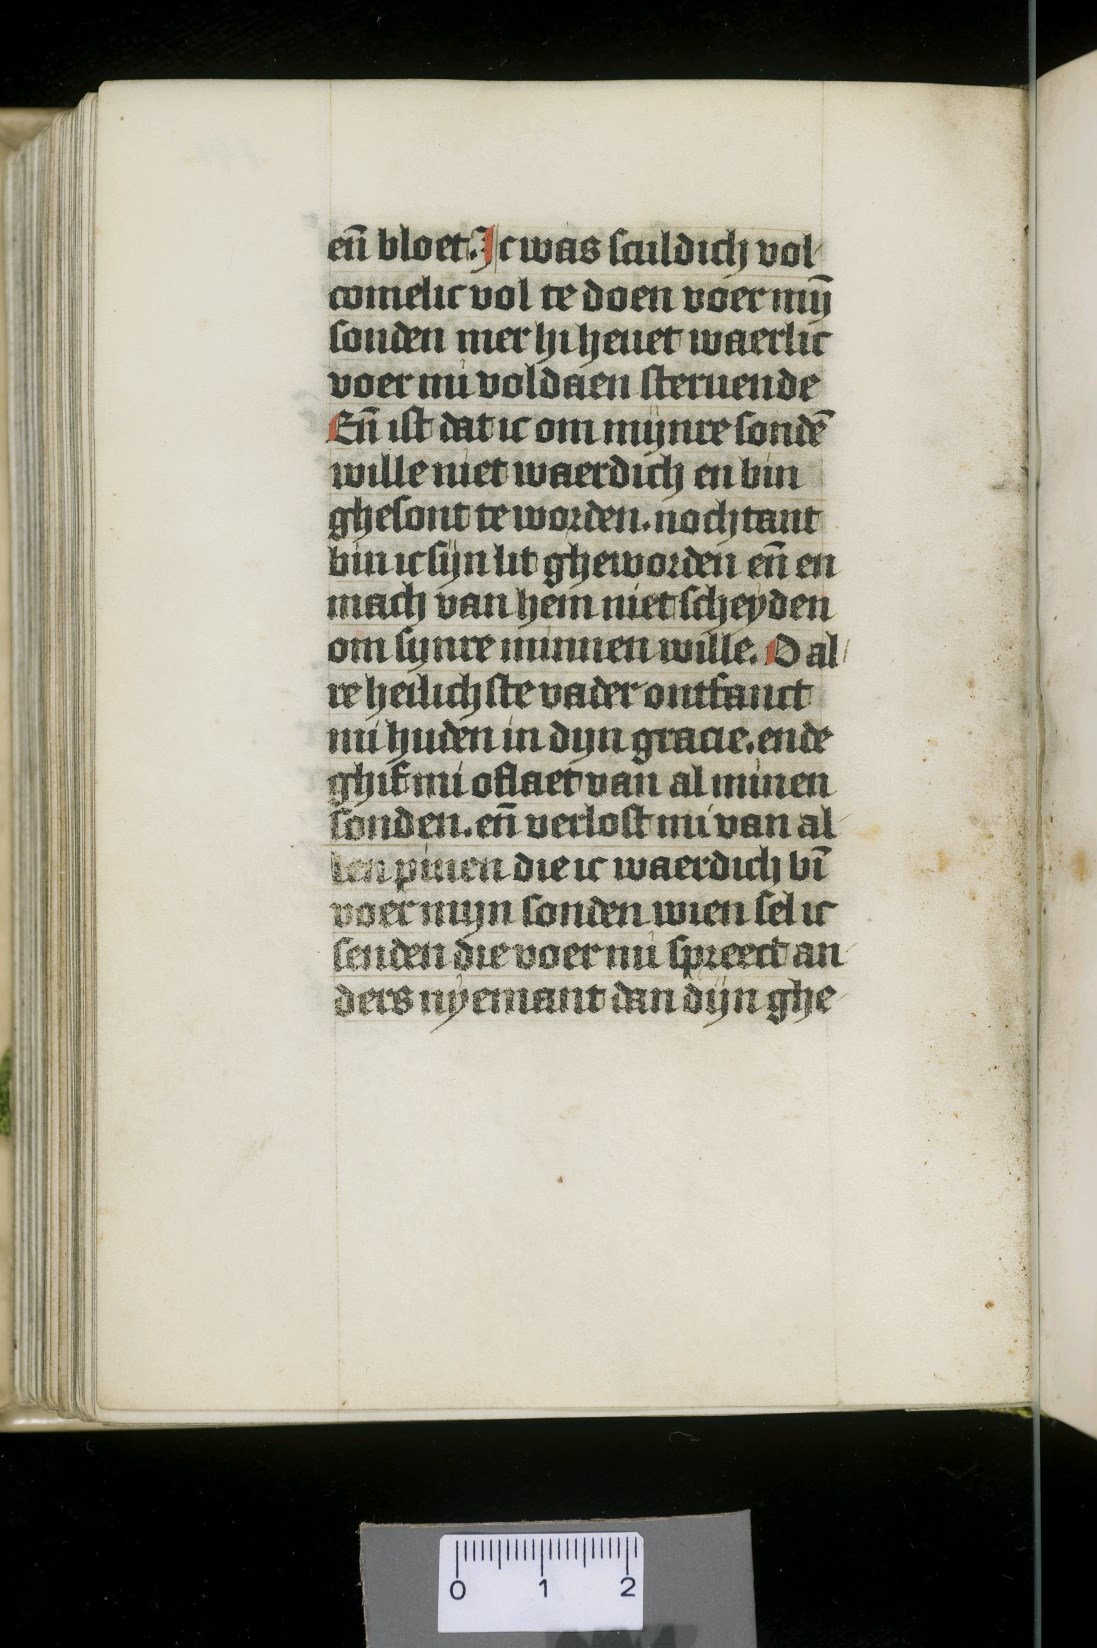 en̄ bloet. Ic was sculdich vol
comelic vol te doen voer mijn̄
sonden mer hi heuet waerlic
voer mi voldaen steruende
En̄ ist dat ic om mijnre sondē
wille niet waerdich en bin
ghesont te worden. nochtant
bin ic sijn lit gheworden en̄ en
mach van hem niet scheyden
om sijnre minnen wille. O al
re heilichste vader ontfanct
mi huden in dijn gracie. ende
ghif mi oflaet van al minen
sonden. en̄ verlost mi van al
len pinen die ic waerdich bī
voer mijn sonden wien sel ic
senden die voer mi spreect an
ders nyemant dan dijn ghe
0 1 2